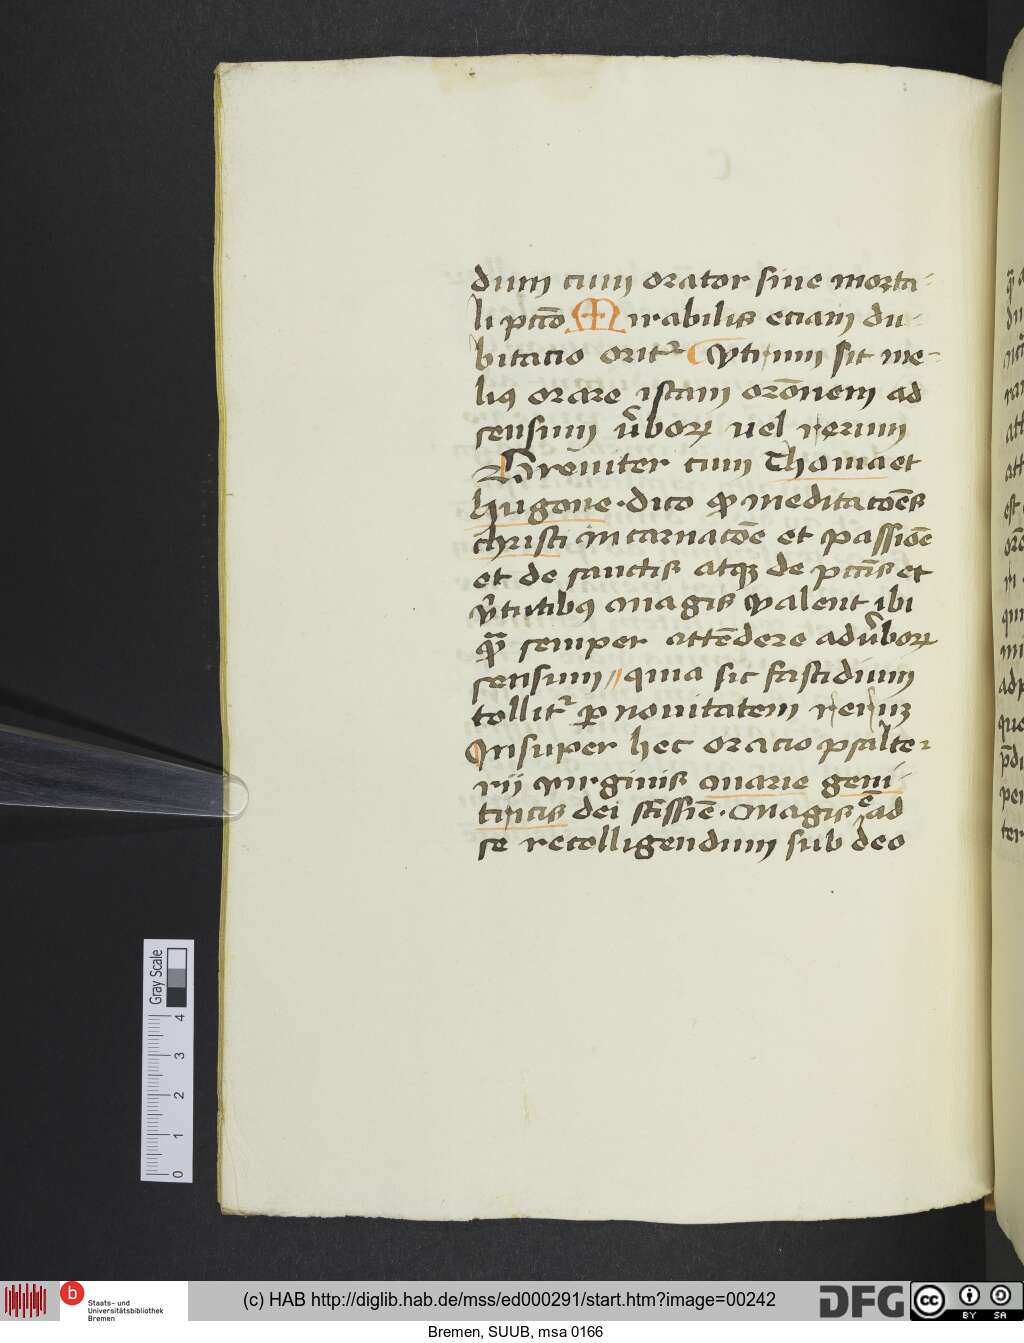 dum cum orator sine morta-
li pctō Mirabilis eciam du-
bitacio oritr Vtrum sit me-
lius orare istam orōnem ad
sensum v̄borꝝ uel rerum
Breuiter cum Thoma et
hugone · dico ꝙ meditacōēs
christi incarnacōe et passiōe
et de sanctis atqꝫ de pctīs et
v̄tutibꝯ magis valent ibi
semper attēdere ad v̄borꝝ
sensum // quia sic fastidium
tollitr ꝑ nouitatem rerum
Insuper hec oracio psalte-
rii virginis marie geni-
tricis dei sc̄issīe · Magis ē ad
se recolligendum sub deo
Gray Scale
0 1 2 3 4
b Staats- und
Universitätsbibliothek
Bremen
(c) HAB http://diglib.hab.de/mss/ed000291/start.htm?image=00242
DFG
cc BY SA
Bremen, SUUB, msa 0166